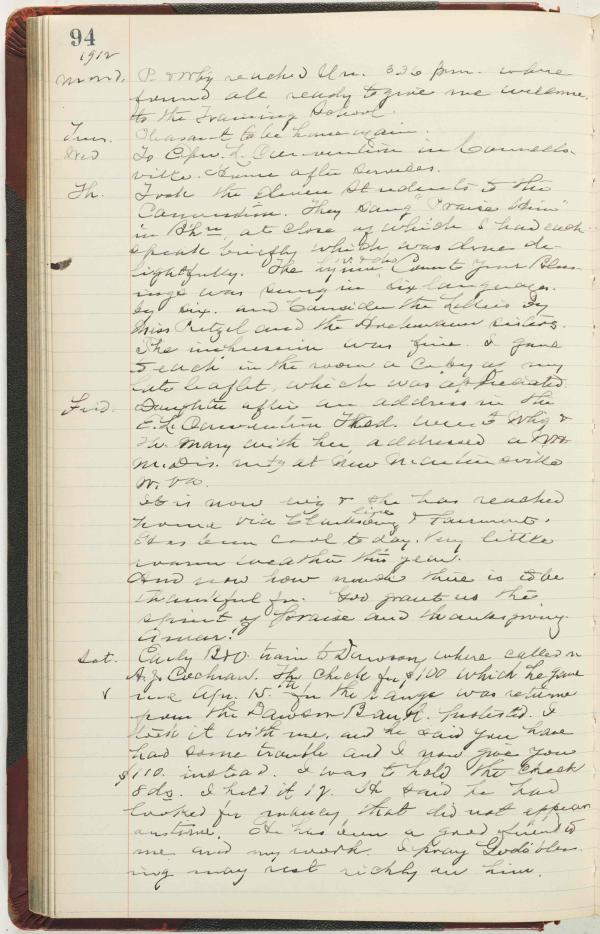 94
1912
Mond. P. & Whg reached Un. 3.26 p.m. where
found all ready to give me welcome
to the Training School.
Tues. Pleasant to be home again.
Wed To Epw. L. Convention in Connells-
ville. Home after services.
Th. Took the eleven students to the
Convention. They sang "Praise Him"
in at close of which I had each
speak briefly which was done de-
lightfully. The hymn Count Your Bless-
ings was sung in six languages
by six. and the
Miss Pretzel and the sisters.
The impression was fine. I gave
to each in the room a copy of my
late leaflet, which was appreciated.
Frid. Daughter after an address in the
E. L. Convention Thsd. went to Whg &
Th. Mary with her, addressed a
M. Dis. mtg at New Martinsville
W. Va.
It is now & she has reached
home via Clarksburg & Fairmont.
Has been cool to day. Very little
warm weather this year.
And now how much there is to be
thankful for. God grant us the
spirit of praise and thanksgiving.
Amen!
Sat. Early B&O. train to Dawson, where called on
A. J. Cochran. The check for $100 which he gave
me Apr. 15.th for the was returned
from the Dawson Bank protested. I
took it with me, and he said you have
had some trouble and I now give you
$110. instead. I was to hold the check
8 ds. I held it 17. He said he had
looked for money that did not appear
on time. He has been a good friend to
me and my work. I pray God's bless-
ing may rest richly on him.